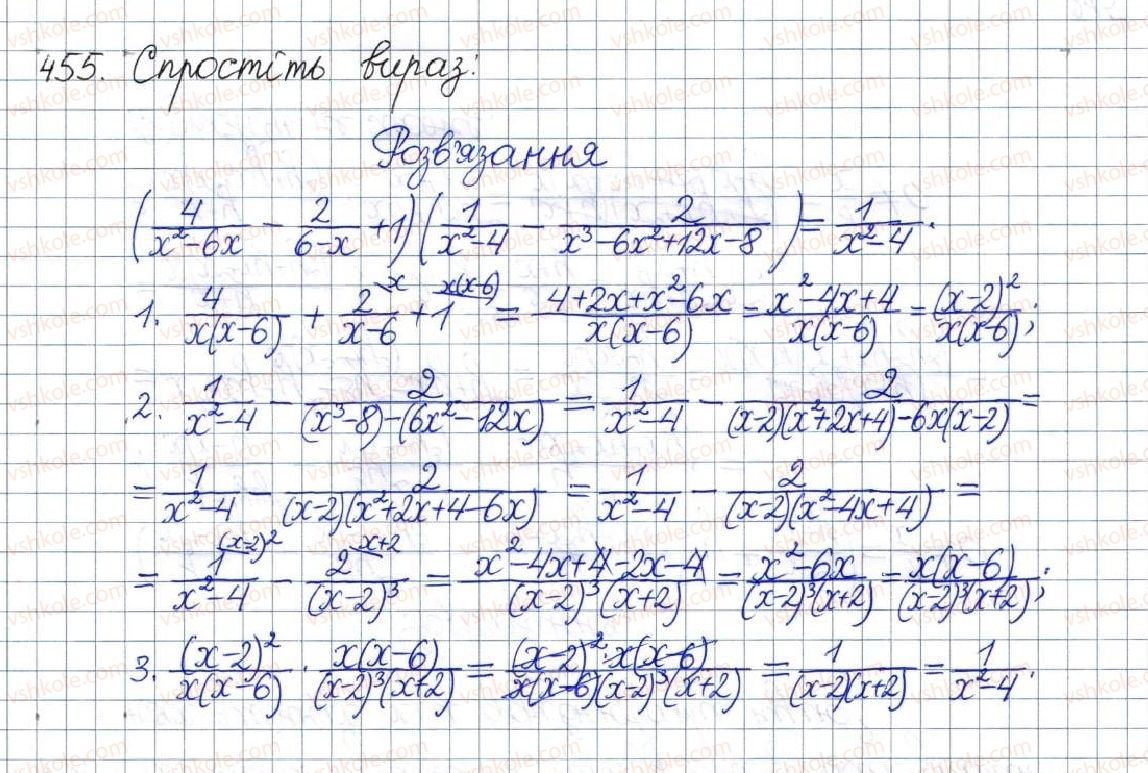 455. Спростіть вираз:
Розв'язання
(4/(x²-6x) - 2/(6-x) + 1)(1/(x²-4) - 2/(x³-6x²+12x-8)) = 1/(x²-4).
1. 4/(x(x-6)) + 2/(x-6) \x + 1 \x(x-6) = (4+2x+x²-6x)/(x(x-6)) = (x²-4x+4)/(x(x-6)) = (x-2)²/(x(x-6));
2. 1/(x²-4) - 2/((x³-8)-(6x²-12x)) = 1/(x²-4) - 2/((x-2)(x²+2x+4)-6x(x-2)) =
= 1/(x²-4) - 2/((x-2)(x²+2x+4-6x)) = 1/(x²-4) - 2/((x-2)(x²-4x+4)) =
= 1/(x²-4) \(x-2)² - 2/(x-2)³ \x+2 = (x²-4x+4-2x-4)/((x-2)³(x+2)) = (x²-6x)/((x-2)³(x+2)) = x(x-6)/((x-2)³(x+2));
3. (x-2)²/(x(x-6)) · x(x-6)/((x-2)³(x+2)) = ((x-2)²·x(x-6))/(x(x-6)(x-2)³(x+2)) = 1/((x-2)(x+2)) = 1/(x²-4).
vshkole.com